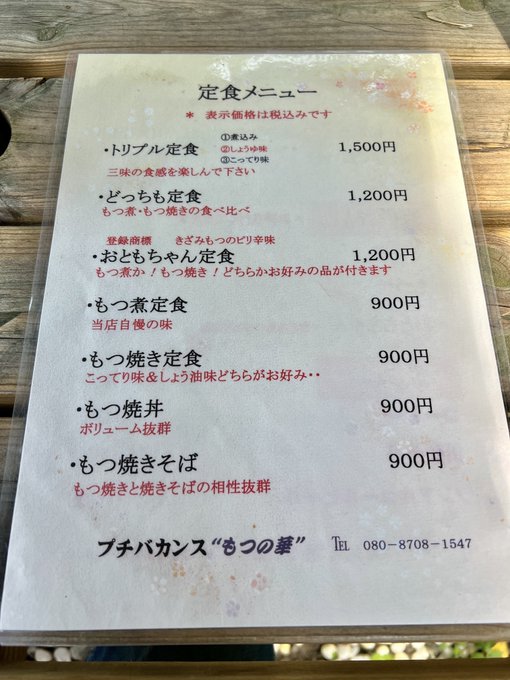 定食メニュー
* 表示価格は税込みです
・トリプル定食 ①煮込み ②しょうゆ味 ③こってり味 1,500円
三味の食感を楽しんで下さい
・どっちも定食 1,200円
もつ煮・もつ焼きの食べ比べ
登録商標 きざみもつのピリ辛味
・おともちゃん定食 1,200円
もつ煮か!もつ焼き!どちらかお好みの品が付きます
・もつ煮定食 900円
当店自慢の味
・もつ焼き定食 900円
こってり味&しょう油味どちらがお好み・・
・もつ焼丼 900円
ボリューム抜群
・もつ焼きそば 900円
もつ焼きと焼きそばの相性抜群
プチバカンス“もつの華” TEL 080-8708-1547